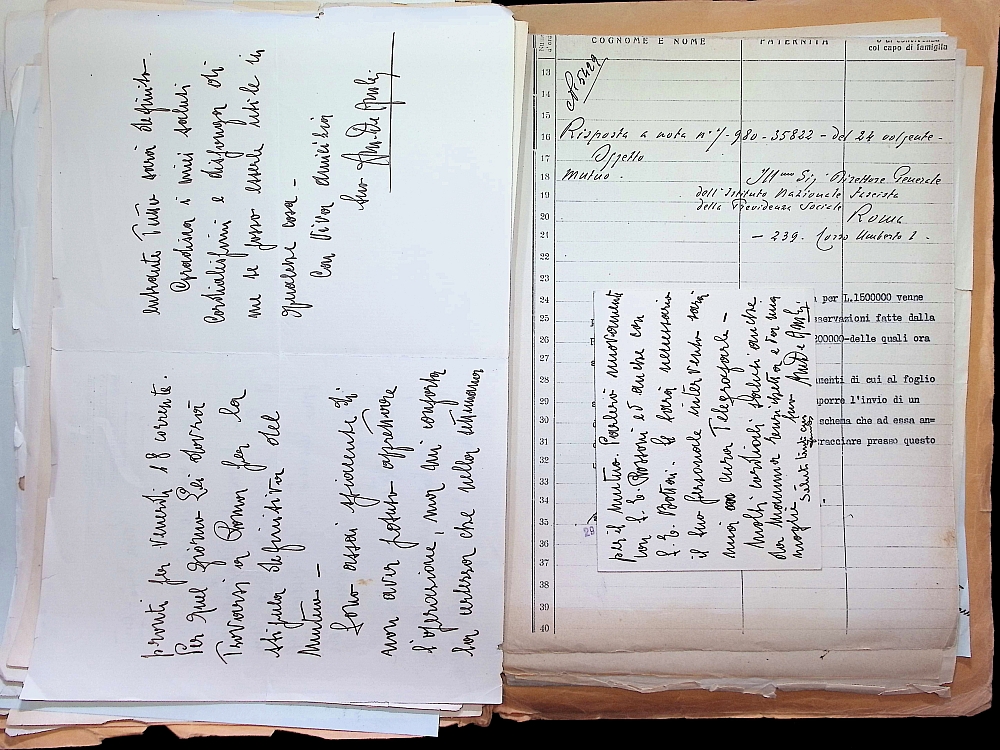 pronti per Venerdì 18 corrente.
Per quel giorno Lei dovrà
trovarsi a Roma per la
stipula definitiva del
mutuo -
Sono assai spiacente di
non aver potuto affrettare
l'operazione, ma mi conforta
la certezza che nella settimana
entrante tutto sarà definito
Gradisca i miei saluti
Cordialissimi e disponga di
me se posso esserle utile in
qualche cosa -
Con viva amicizia
Suo
COGNOME E NOME
PATERNITÀ
col capo di famiglia
N. 5429
13
14
15
16
17
18
19
20
21
22
23
24
25
26
27
28
29
30
31
32
33
34
35
36
37
38
39
40
Risposta a nota n° 1/-980-35822 - del 24 volgente -
Oggetto
Mutuo.
Ill.mo Sig. Direttore Generale
dell'Istituto Nazionale Fascista
della Previdenza Sociale
Roma
- 239. Corso Umberto I. -
per L.1500000 venne
servazioni fatte dalla
200000-delle quali ora
menti di cui al foglio
porre l'invio di un
schema che ad essa an=
racciare presso questo
per il mutuo. Parlerò nuovamente
con S. E. Rossoni ed anche con
S. E. Bottai. Se sarà necessario
il suo personale intervento sarà
mia cura telegrafarle -
Molti cordiali saluti anche
da Mamma rispetti e da mia
moglie suo